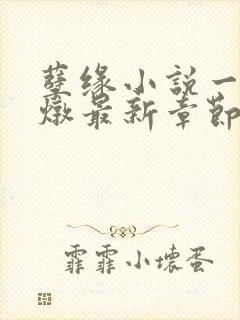 孽缘小说一
燉最新章節
霏霏小壞蛋